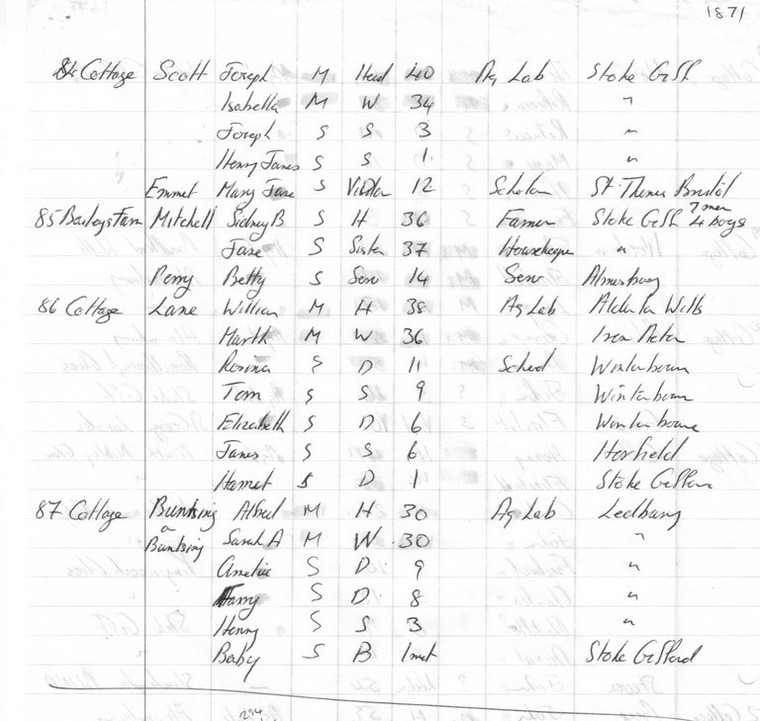 1871
84 Cottage Scott Joseph M Head 40 Ag Lab Stoke Giff
Isabella M W 34 "
Joseph S S 3 "
Henry James S S 1 "
Emmet Mary Jane S Visitor 12 Scholar St. Thomas Bristol
85 Baileys Farm Mitchell Sidney B S H 36 Farmer Stoke Giff 7 men 4 boys
Jane S Sister 37 Housekeeper "
Perry Betty S Serv 14 Serv Almondsbury
86 Cottage Lane William M H 38 Ag Lab Wilts
Marth M W 36 Iron Acton
Rosina S D 11 School Winterbourn
Tom S S 9 Winterbourn
Elizabeth S D 6 Winterbourne
James S S 6 Horfield
Harriet S D 1 Stoke Gifford
87 Cottage Buntsing Alfred M H 30 Ag Lab Ledbury
or Buntsing Sarah A M W 30 "
Amelia S D 9 "
Harry S D 8 "
Henry S S 3 "
Baby S B 1 mnt Stoke Gifford
294